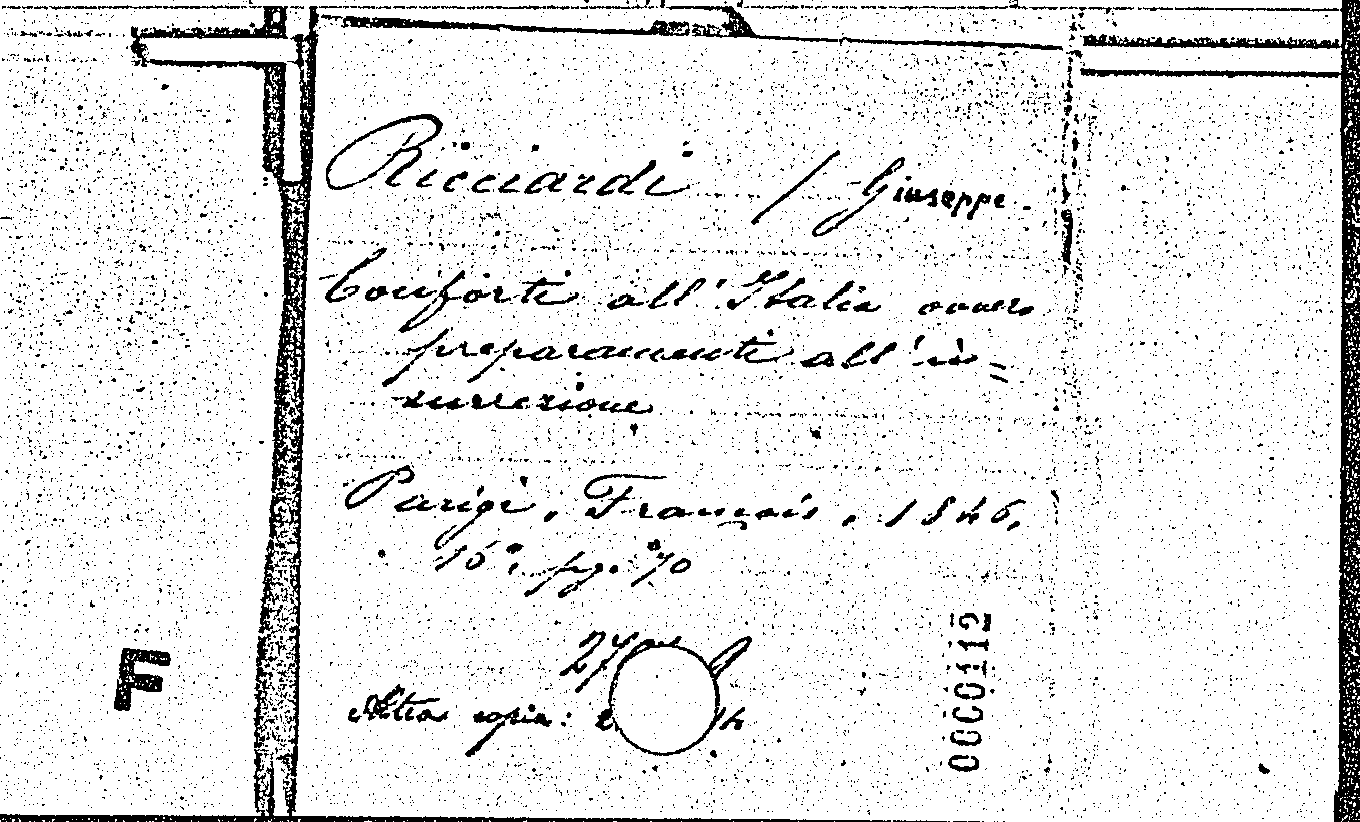 Ricciardi / Giuseppe.
Conforti all'Italia ovvero
preparamenti all'in=
surrezione
Parigi, François, 1846,
16°. pg. 70
Altra copia:
0000112
F